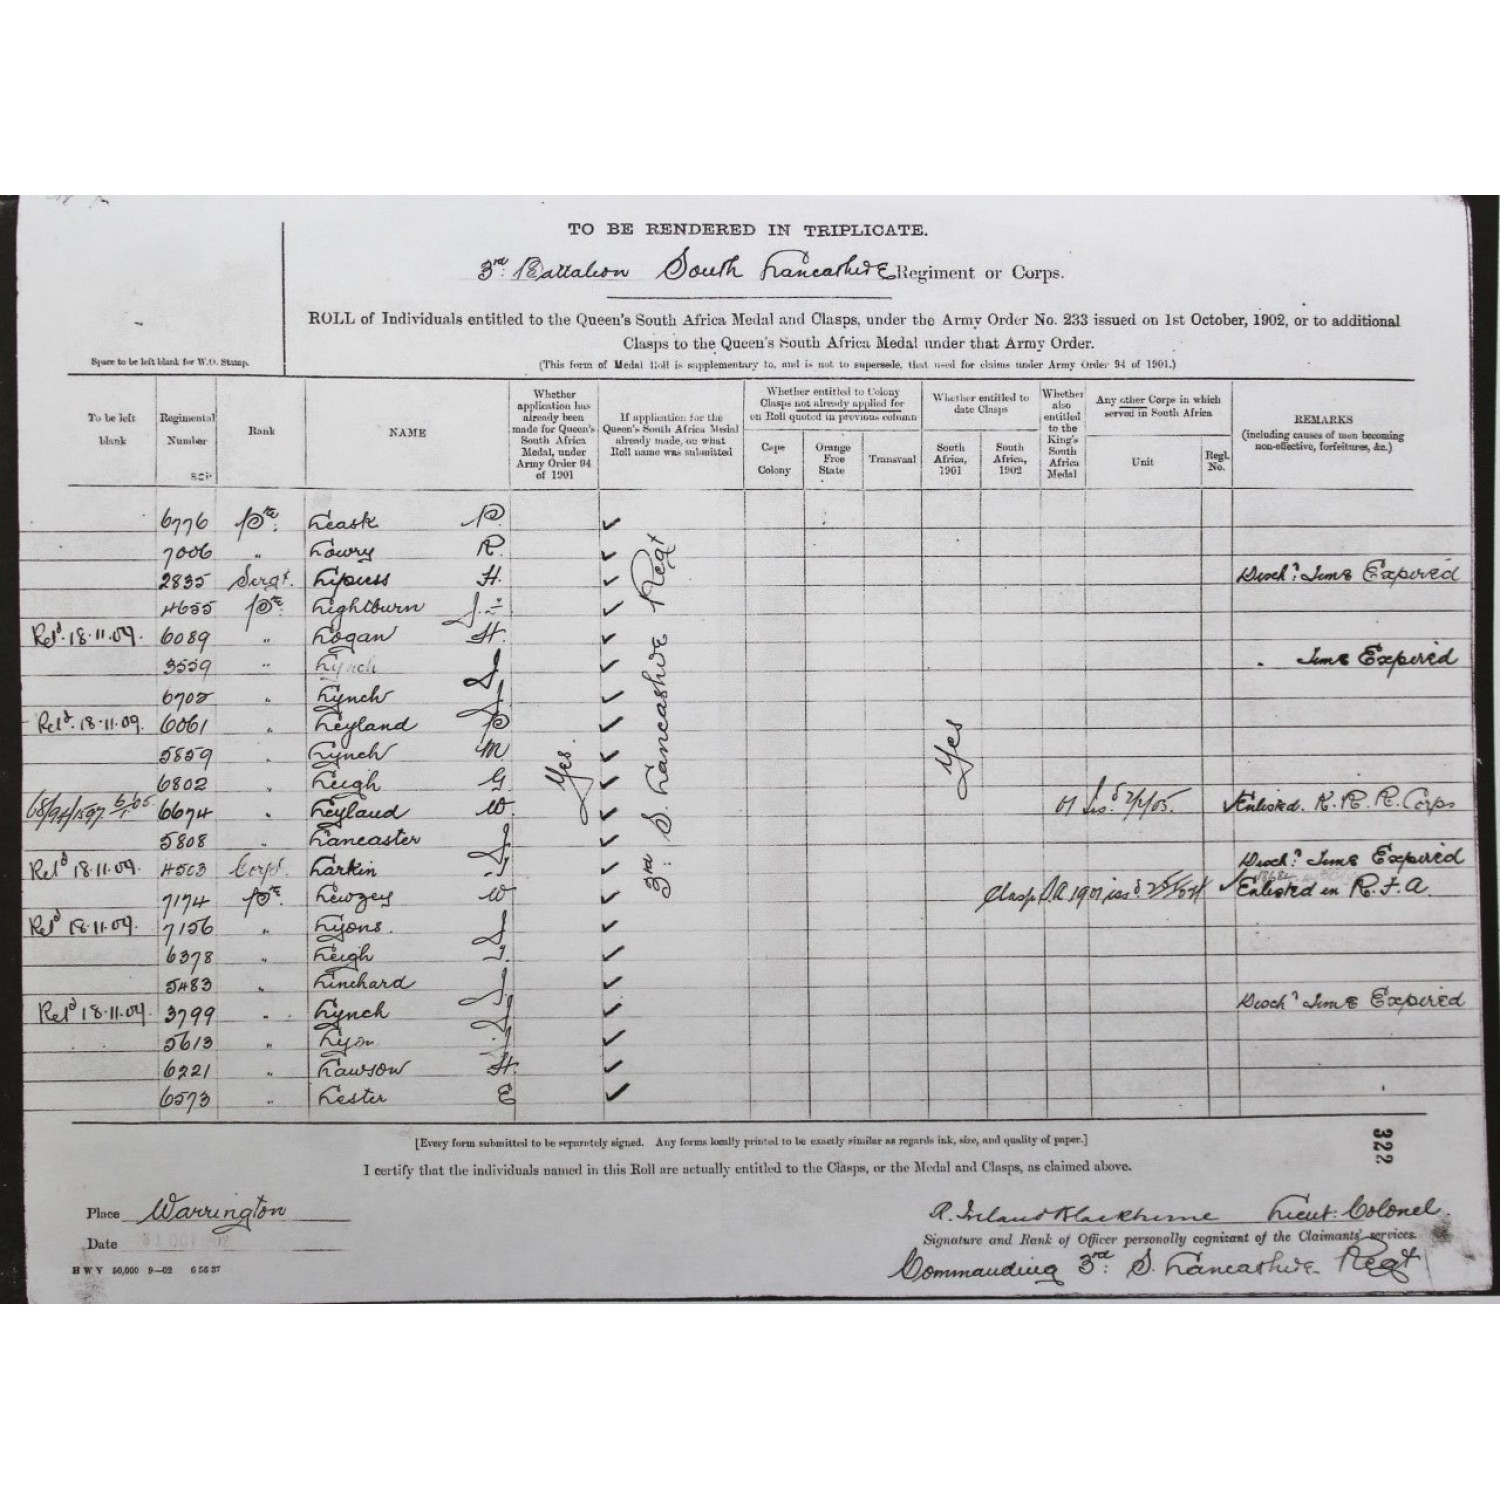 TO BE RENDERED IN TRIPLICATE.
3rd Battalion South Lancashire Regiment or Corps.
ROLL of Individuals entitled to the Queen's South Africa Medal and Clasps, under the Army Order No. 233 issued on 1st October, 1902, or to additional
Clasps to the Queen's South Africa Medal under that Army Order.
Space to be left blank for W.O. Stamp.
(This form of Medal Roll is supplementary to, and is not to supersede, that used for claims under Army Order 94 of 1901.)
To be left blank
Regimental Number
Rank
NAME
Whether application has already been made for Queen's South Africa Medal, under Army Order 94 of 1901
If application for the Queen's South Africa Medal already made, on what Roll name was submitted
Whether entitled to Colony Clasps not already applied for on Roll quoted in previous column
Cape Colony
Orange Free State
Transvaal
Whether entitled to date Clasps
South Africa, 1901
South Africa, 1902
Whether also entitled to the King's South Africa Medal
Any other Corps in which served in South Africa
Unit
Regl. No.
REMARKS
(including causes of men becoming non-effective, forfeitures, &c.)
6776 Pte. Leask P. ✓
7006 " Lowry R. ✓
2835 Sergt. H. ✓ Disch? Time Expired
4655 Pte. Lightburn J. ✓
Retd. 18.11.09. 6089 " Logan H. ✓
3559 " Lynch J ✓ Time Expired
6702 " Lynch J ✓
Retd. 18.11.09. 6061 " Leyland P ✓
5859 Lynch M ✓
6802 Leigh G. ✓
68/94/1597 6674 " Leyland W. ✓ ✓ Enlisted. K. R. R. Corps
5808 " Lancaster J ✓
Retd 18.11.09. 4503 Corpl. Larkin J ✓ Disch? Time Expired
7174 Pte. W ✓ Clasp S.A 1901 ✓ Enlisted in R. F. A.
Retd 18.11.09. 7156 " Lyons. J ✓
6378 " Leigh J. ✓
5483 " Linchard J. ✓
Retd 18.11.09. 3799 " Lynch J ✓ Disch? Time Expired
5613 " Lyon J ✓
6221 " Lawson H. ✓
6573 " Lester E ✓
Yes.
3rd. S. Lancashire Regt
Yes
[Every form submitted to be separately signed. Any forms locally printed to be exactly similar as regards ink, size, and quality of paper.]
322
I certify that the individuals named in this Roll are actually entitled to the Clasps, or the Medal and Clasps, as claimed above.
Place Warrington
R. Ireland Blackburne Lieut: Colonel.
Date
Signature and Rank of Officer personally cognizant of the Claimants' services.
H W V 50,000 9—02 6 56 37
Commanding 3rd. S. Lancashire Regt